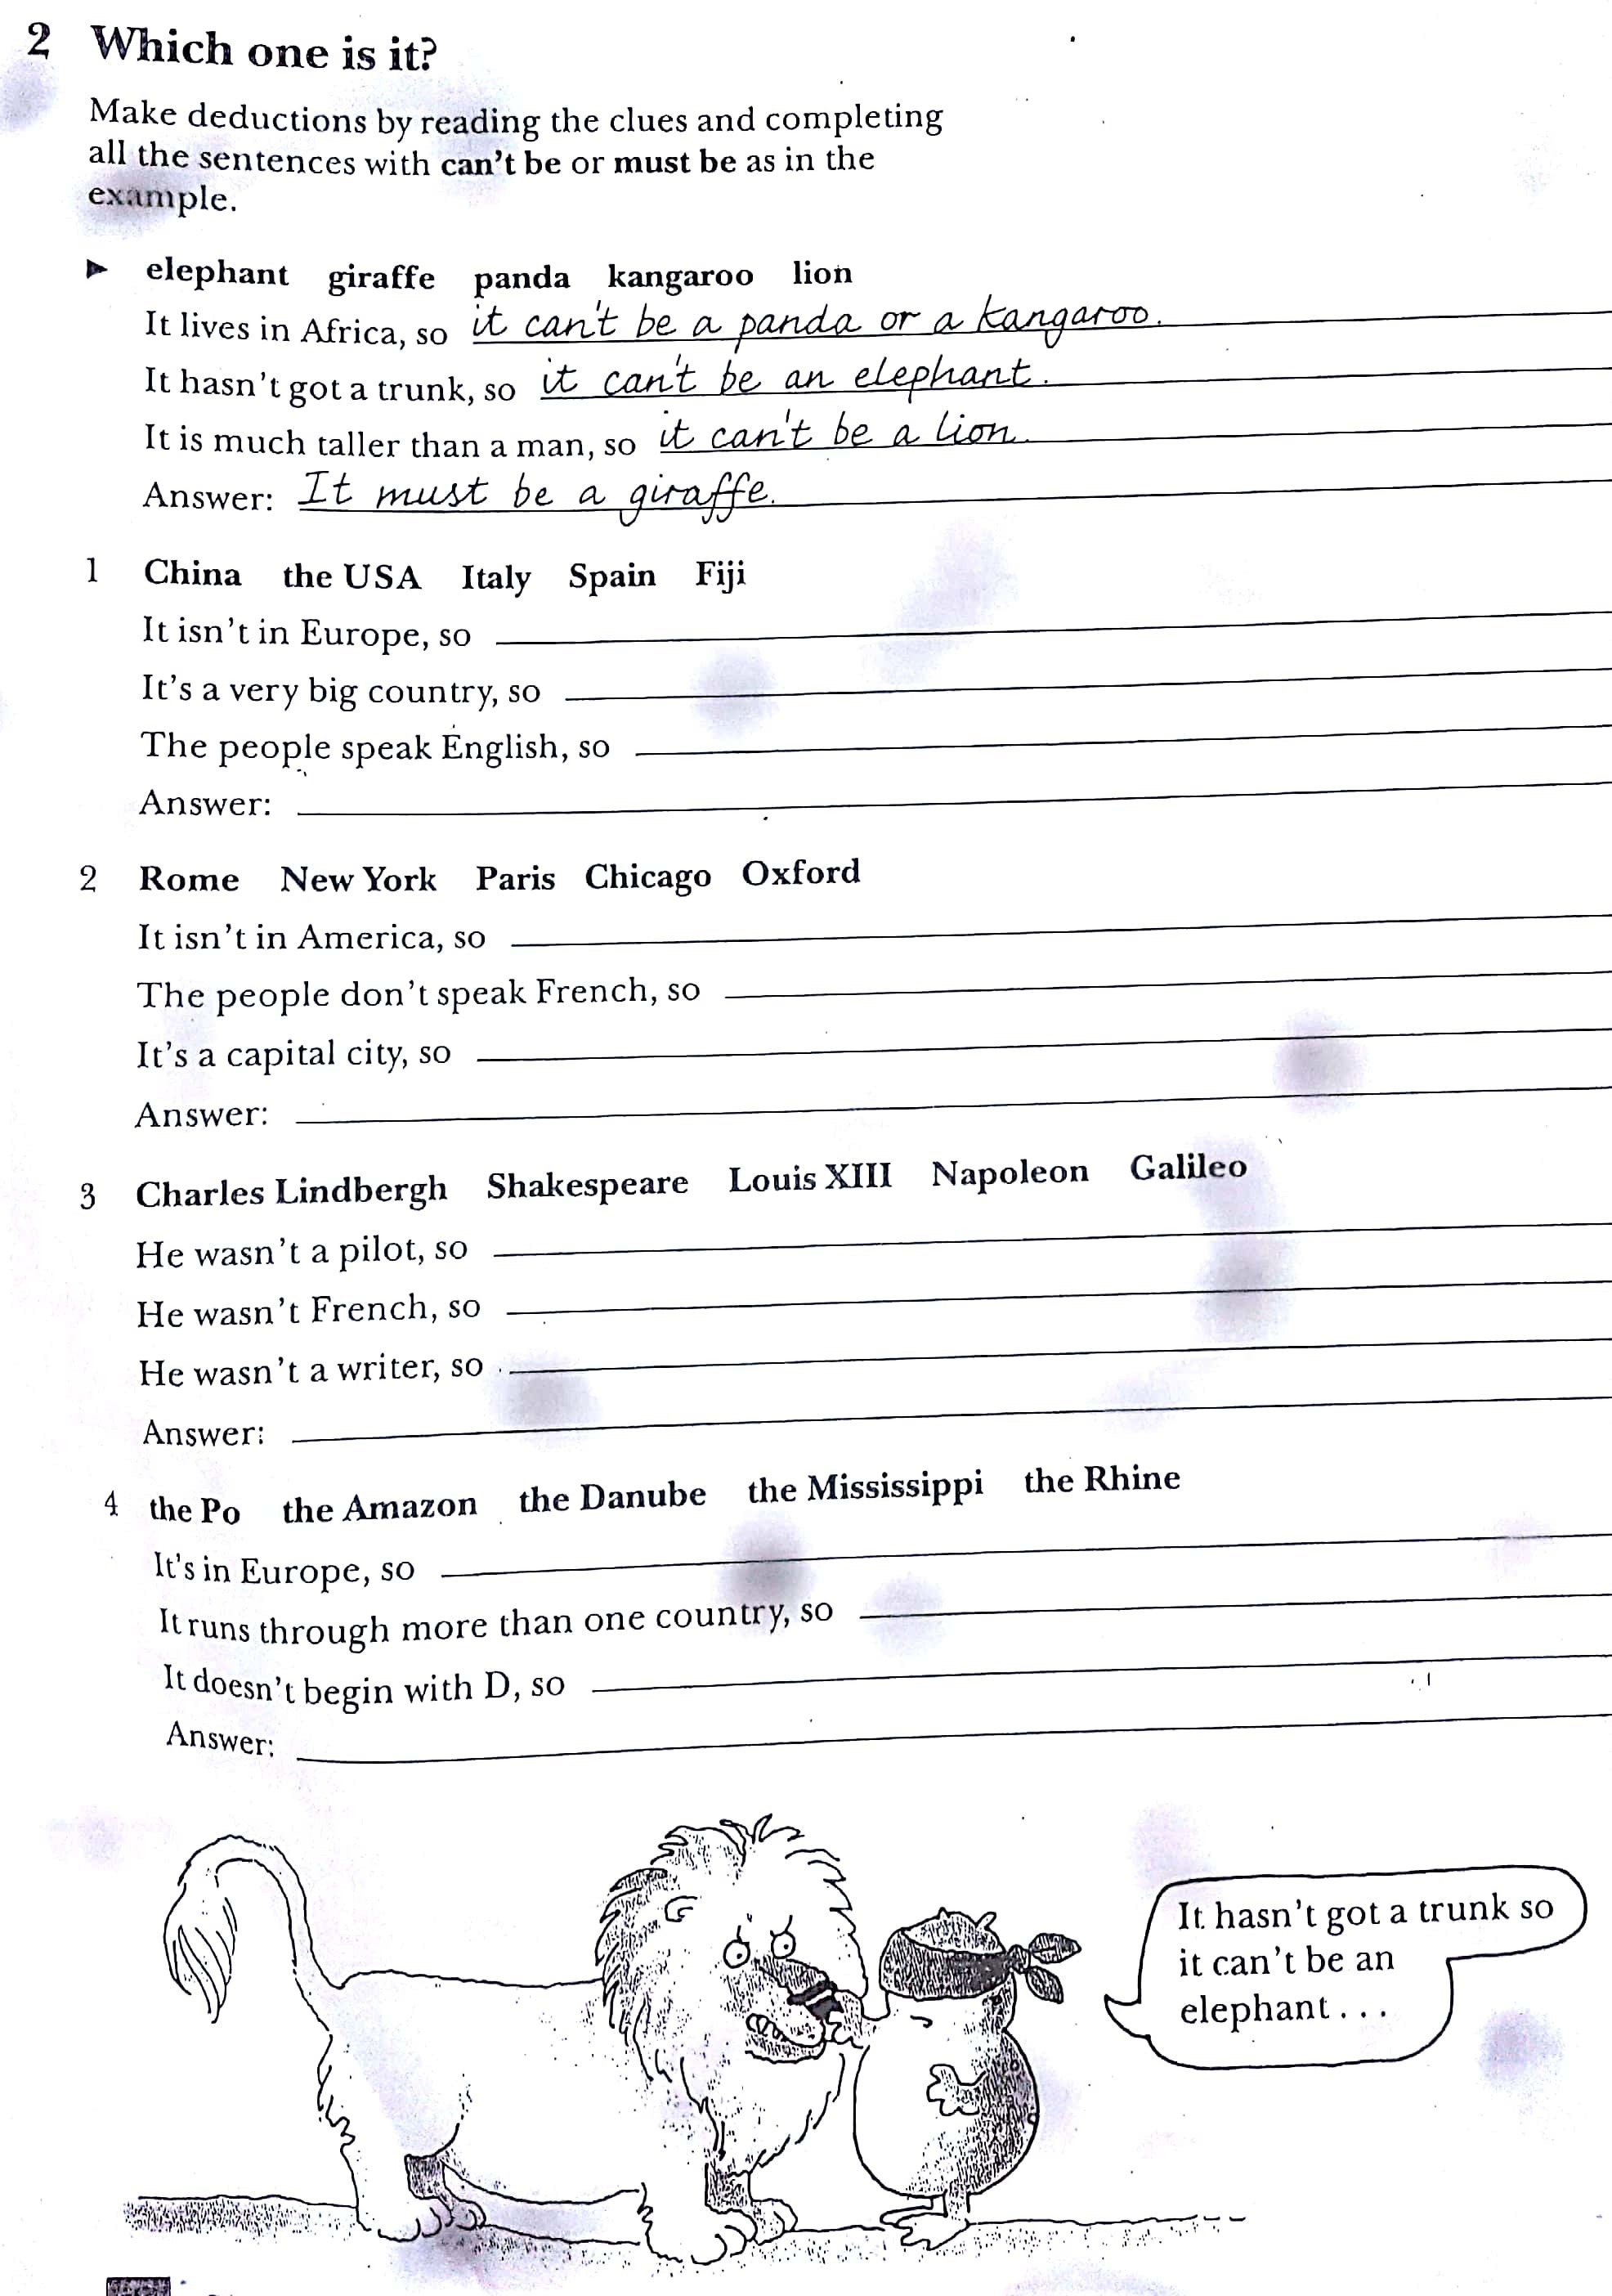 2 Which one is it?
Make deductions by reading the clues and completing
all the sentences with can't be or must be as in the
example.
► elephant giraffe panda kangaroo lion
It lives in Africa, so it can't be a panda or a kangaroo.
It hasn't got a trunk, so it can't be an elephant.
It is much taller than a man, so it can't be a lion.
Answer: It must be a giraffe.
1 China the USA Italy Spain Fiji
It isn't in Europe, so
It's a very big country, so
The people speak English, so
Answer:
2 Rome New York Paris Chicago Oxford
It isn't in America, so
The people don't speak French, so
It's a capital city, so
Answer:
3 Charles Lindbergh Shakespeare Louis XIII Napoleon Galileo
He wasn't a pilot, so
He wasn't French, so
He wasn't a writer, so
Answer:
4 the Po the Amazon the Danube the Mississippi the Rhine
It's in Europe, so
It runs through more than one country, so
It doesn't begin with D, so
Answer:
It hasn't got a trunk so
it can't be an
elephant . . .